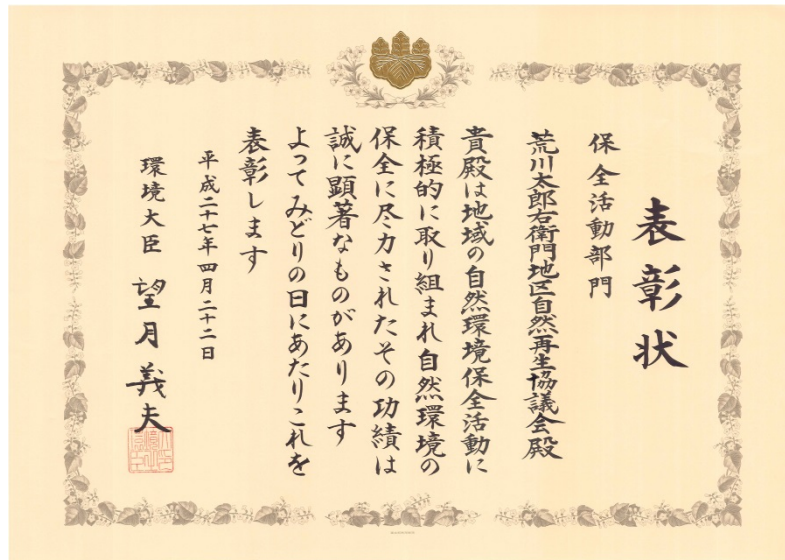 表彰状
保全活動部門
荒川太郎右衛門地区自然再生協議会殿
貴殿は地域の自然環境保全活動に
積極的に取り組まれ自然環境の
保全に尽力されたその功績は
誠に顕著なものがあります
よってみどりの日にあたりこれを
表彰します
平成二十七年四月二十二日
環境大臣 望月義夫